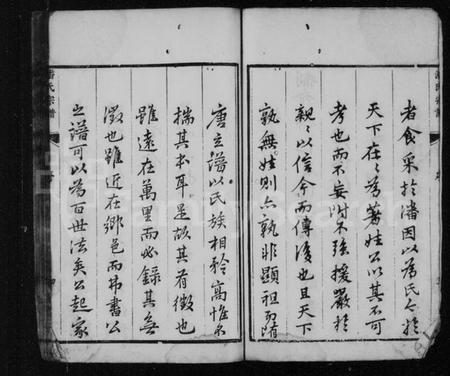 者食采扵潘因以為氏今扵
天下在在為著姓公以其不可
考也而不妄附不強援嚴扵
親親以信今而傳後也且天下
孰無姓則亦孰非顯祖而隋
唐立譜以氏族相矜高惟不
揣其本耳是故其有徵也
雖遠在萬里而必録其無
徵也雖近在鄉邑而弗書公
之譜可以為百世法矣公起家
潘氏宗譜